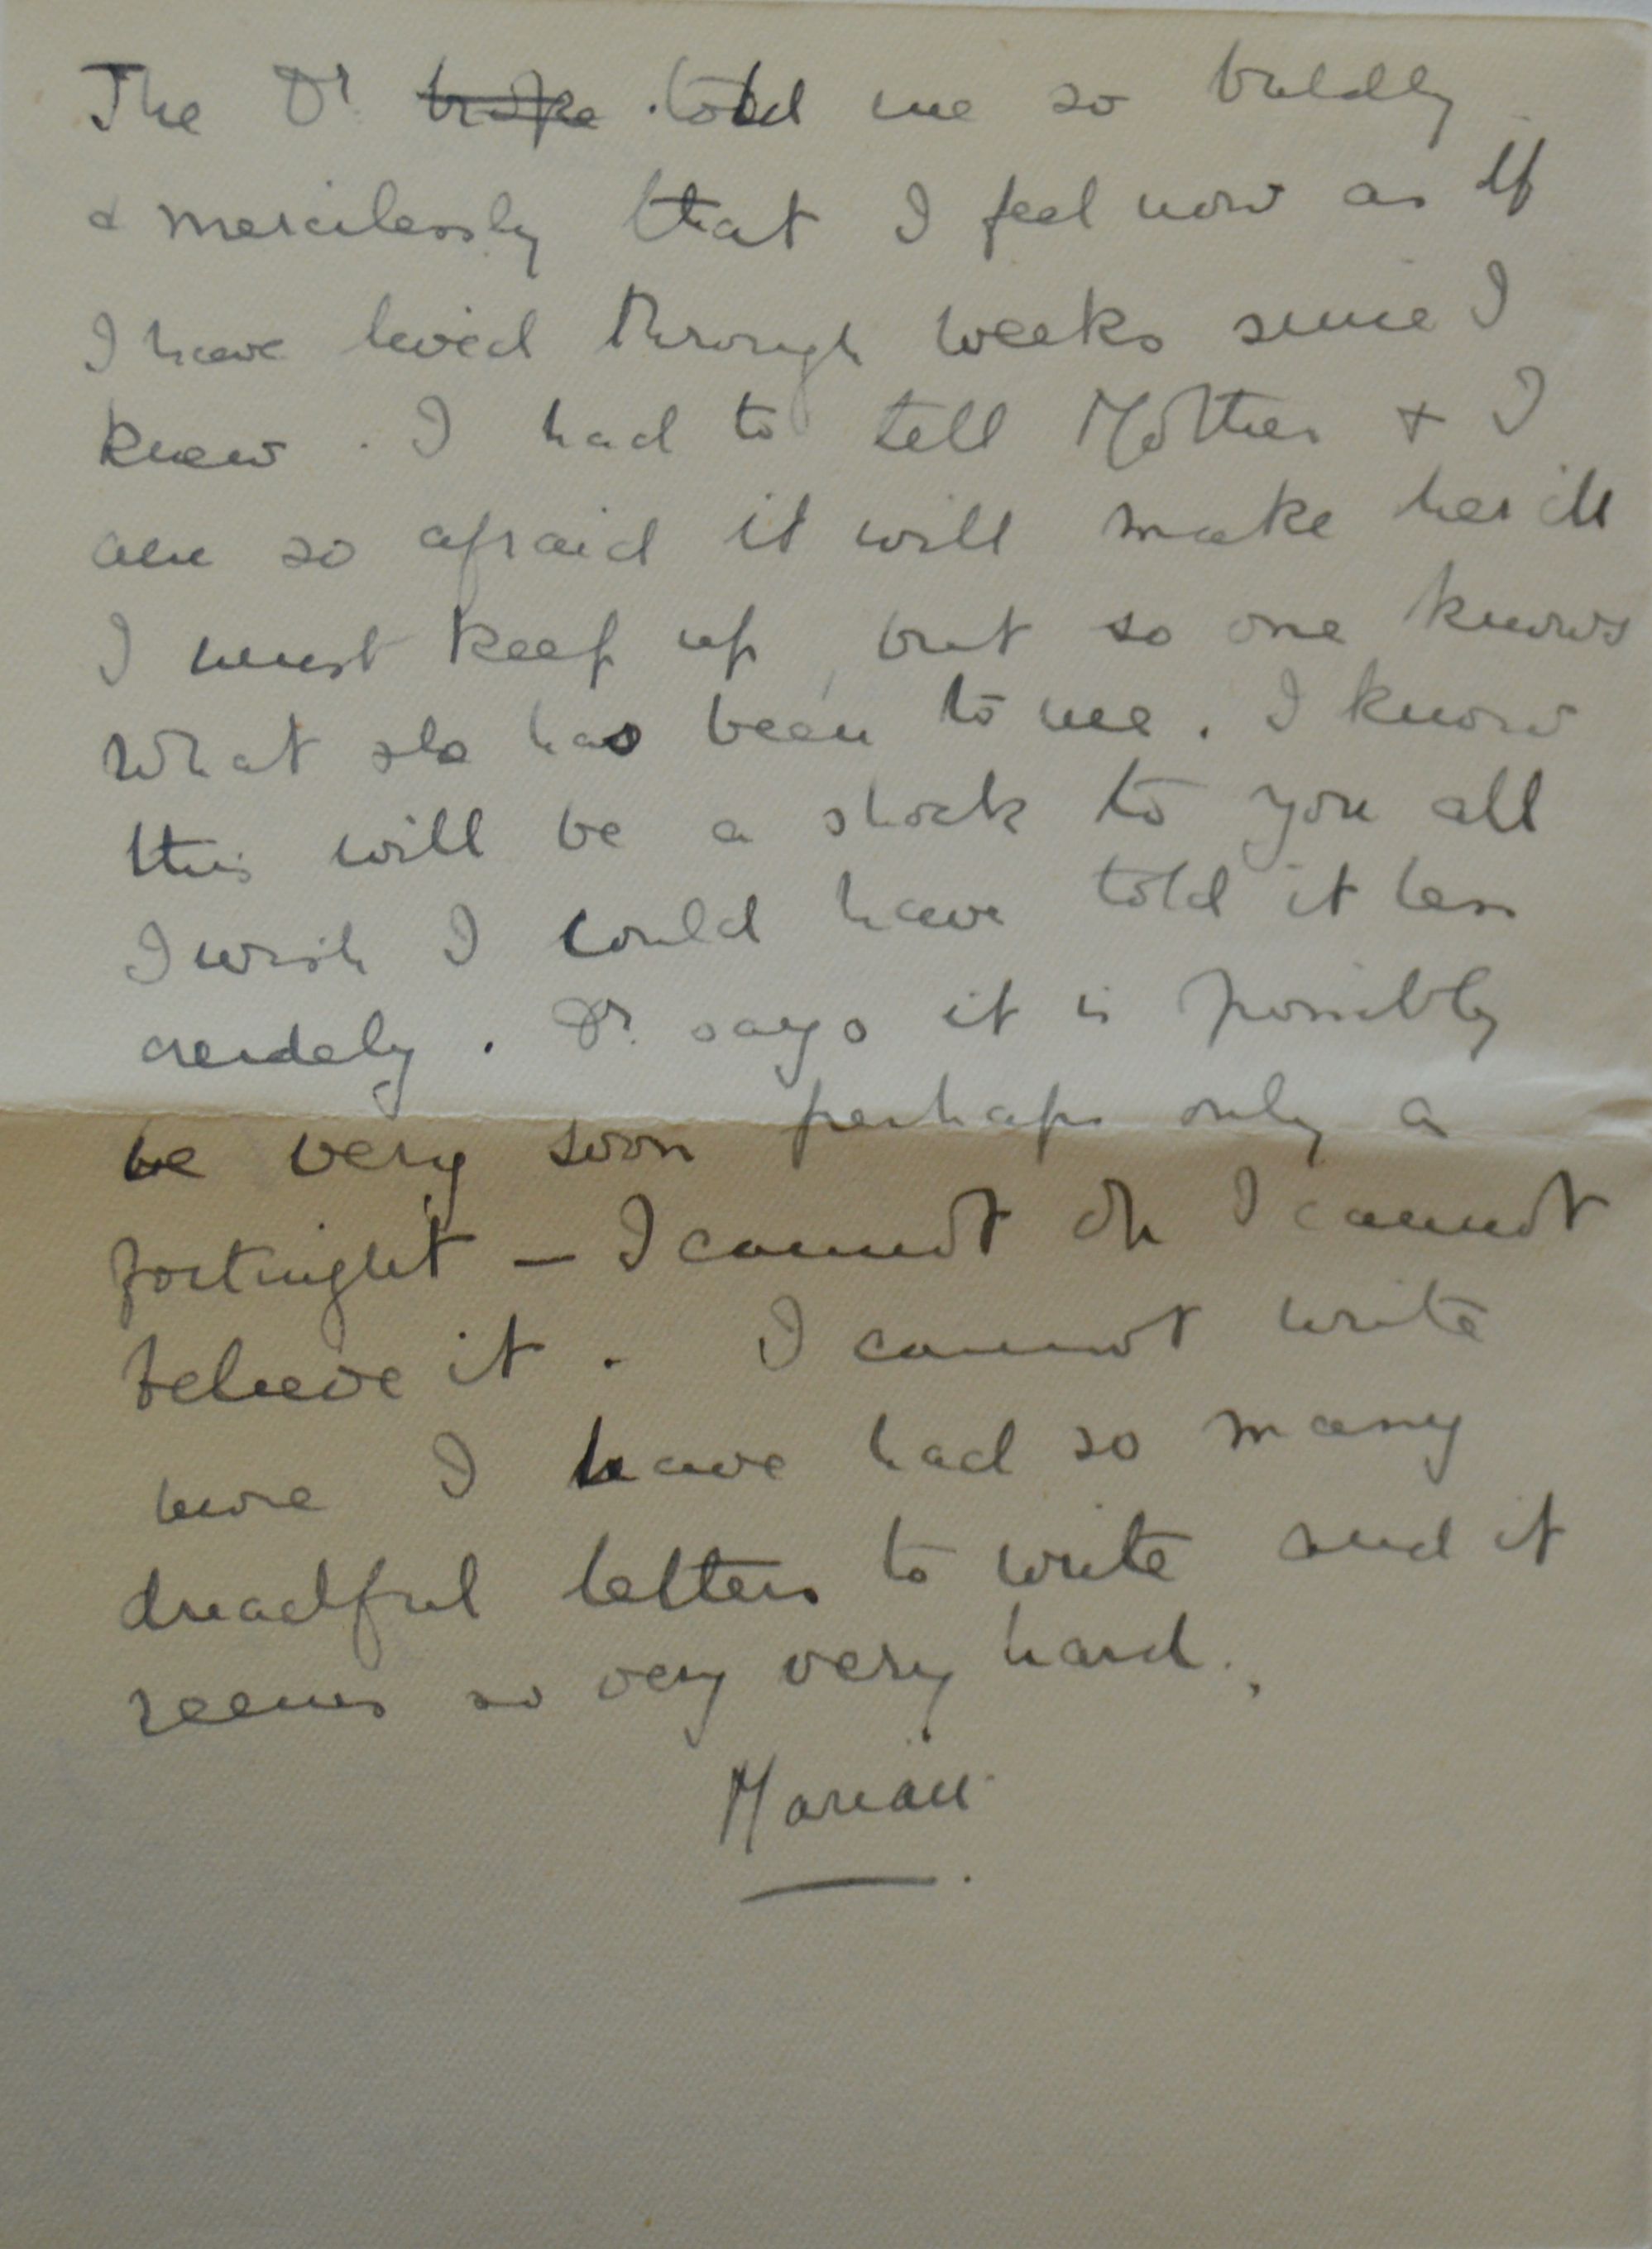 The Dr. broke told me so baldly
& mercilessly that I feel now as if
I have lived through weeks since I
knew. I had to tell Mother + I
am so afraid it will make her ill
I must keep up, but so one knows
what she has been to me. I know
this will be a shock to you all
I wish I could have told it less
crudely. Dr. says it is possibly
be very soon perhaps only a
fortnight — I cannot oh I cannot
believe it. I cannot write
more I have had so many
dreadful letters to write and it
seems so very very hard.
Marian.